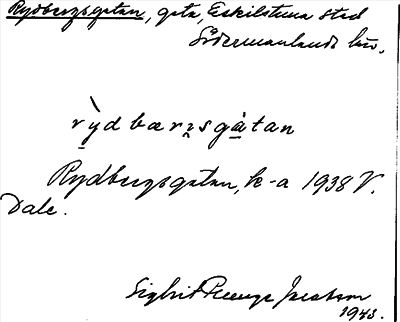 Rydbergsgatan, gata, Eskilstuna stad
Södermanlands län.
rỳdbærꝛsgàtan
Rydbergsgatan, k-a 1938 V.
Dale.
Sigbrit Jacobson
1943.